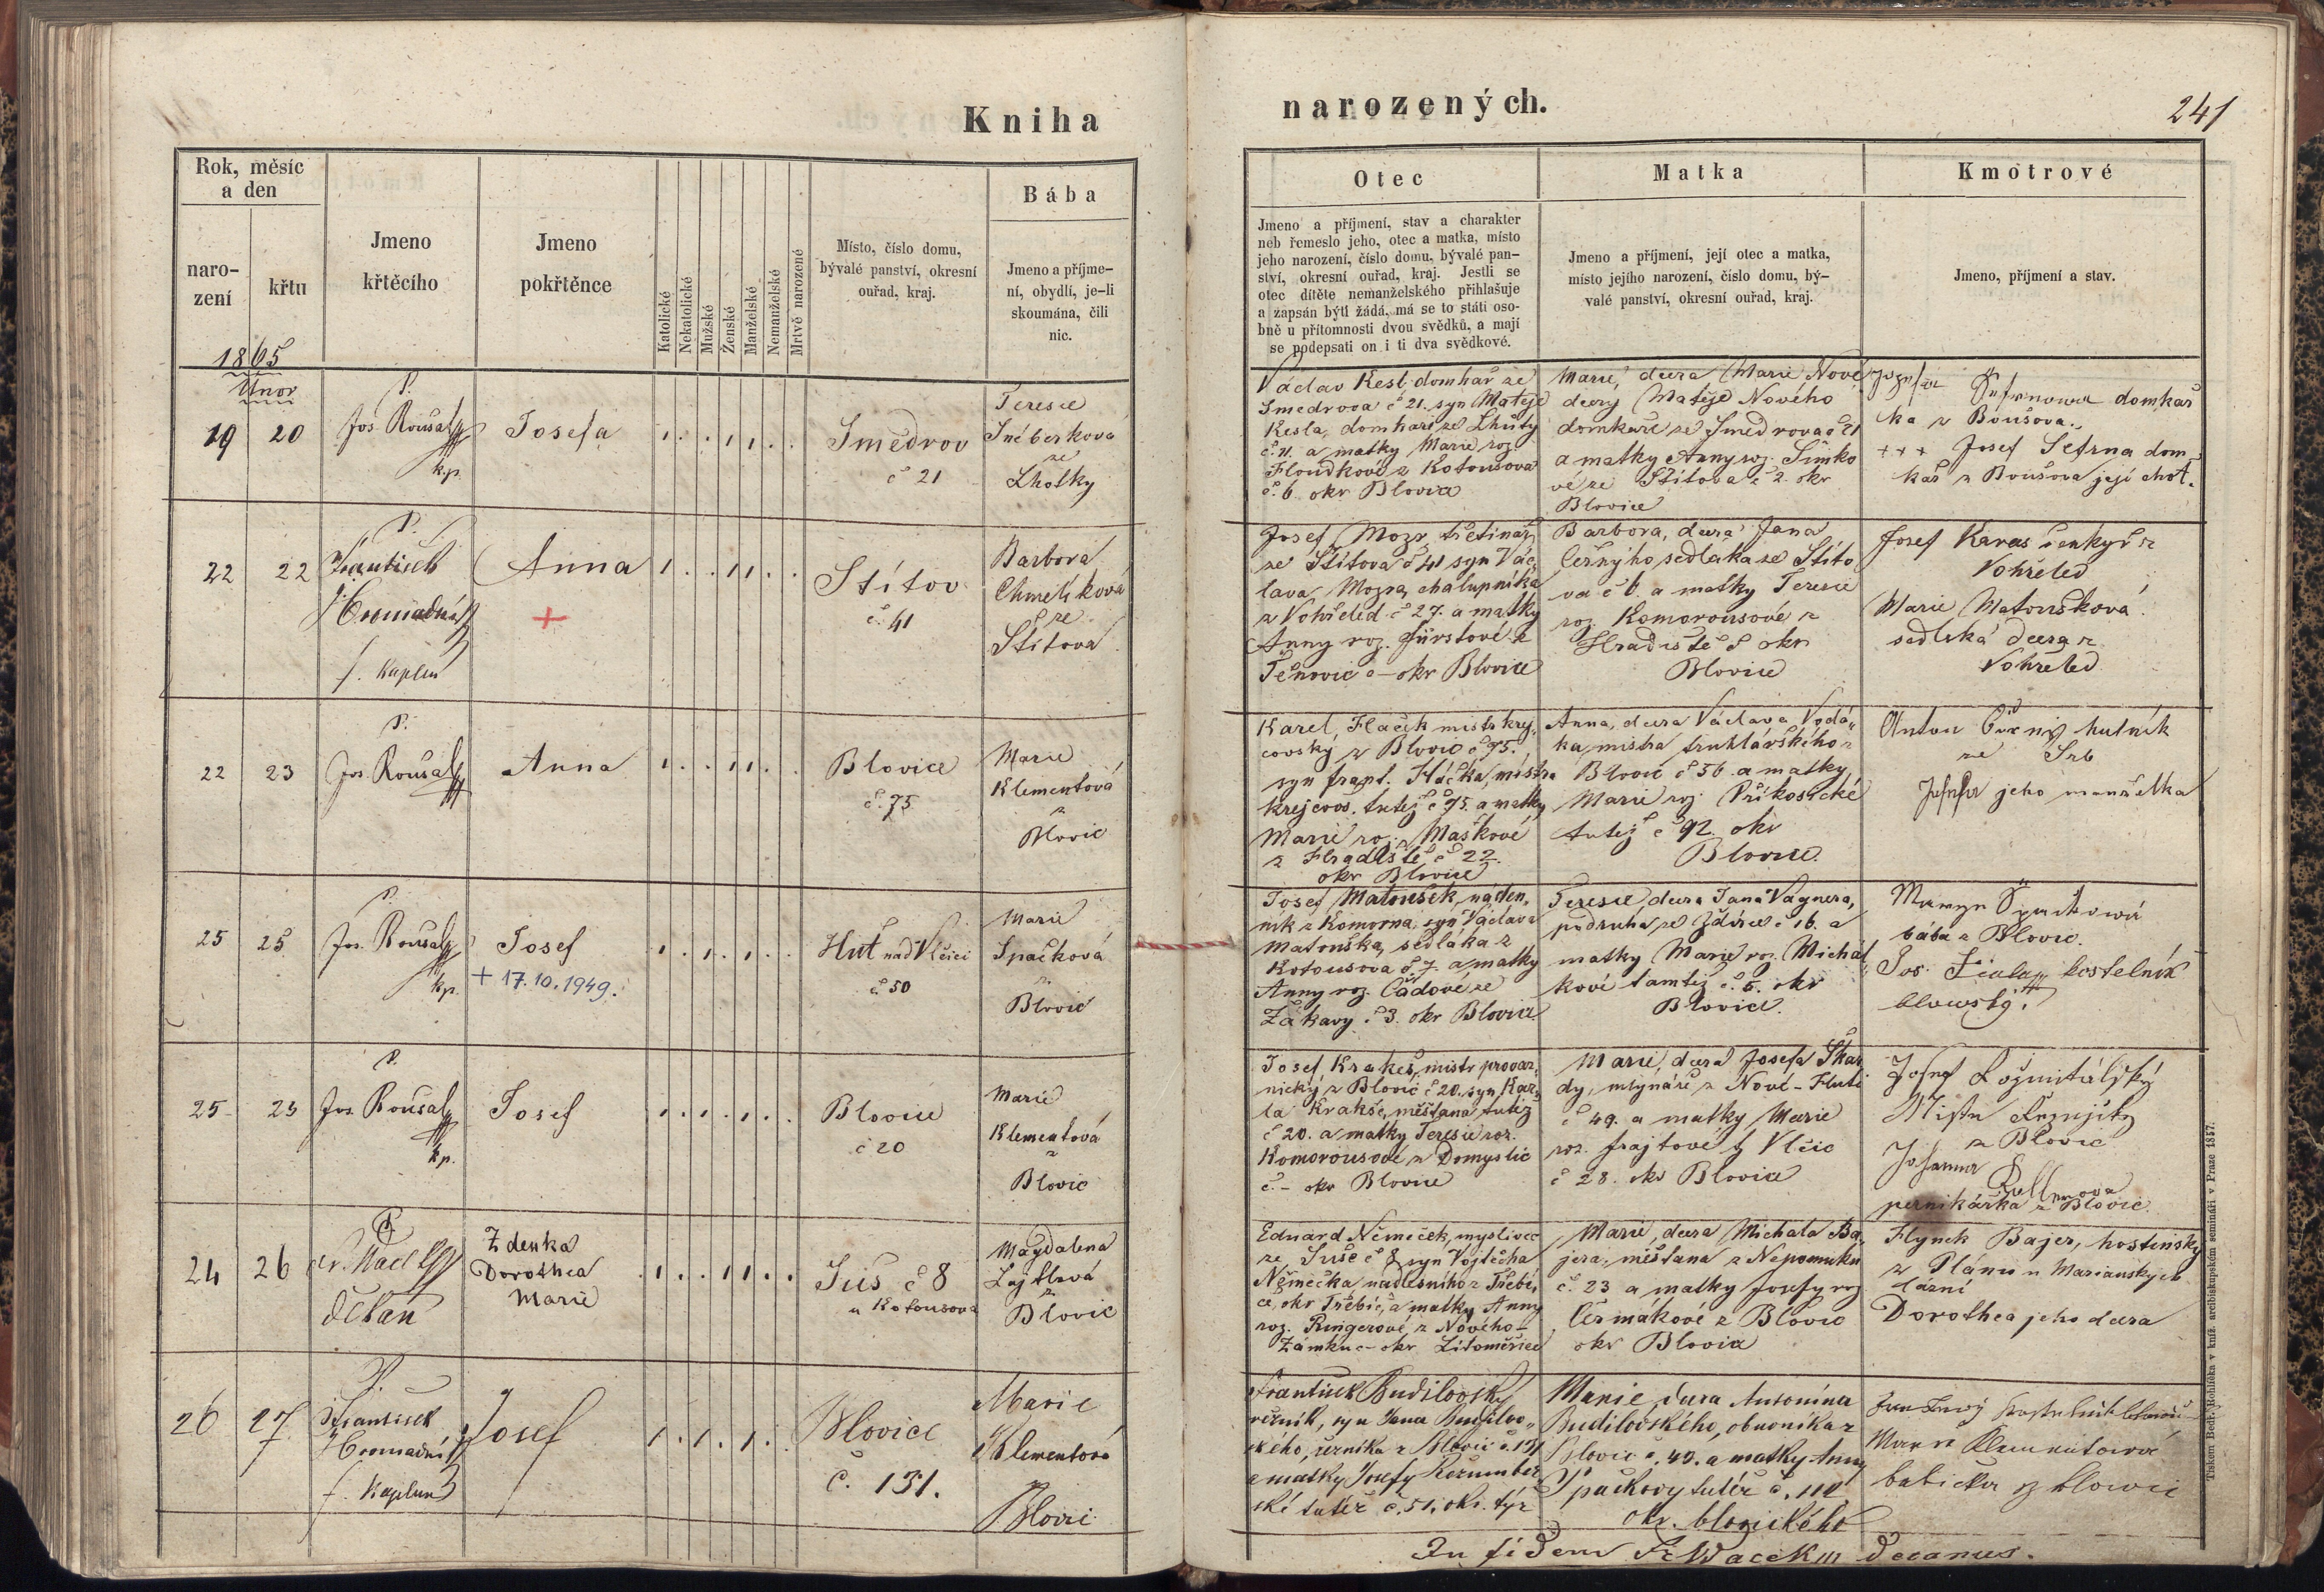 Kniha
narozených.
241
Rok, měsíc
a den
naro-
zení
křtu
Jmeno
křtěcího
Jmeno
pokřtěnce
Katolické
Nekatolické
Mužské
Ženské
Manželské
Nemanželské
Mrtvě narozené
Místo, číslo domu,
bývalé panství, okresní
ouřad, kraj.
Bába
Jmeno a příjme-
ní, obydlí, je-li
skoumána, čili
nic.
Otec
Jmeno a příjmení, stav a charakter
neb řemeslo jeho, otec a matka, místo
jeho narození, číslo domu, bývalé pan-
ství, okresní ouřad, kraj. Jestli se
otec dítěte nemanželského přihlašuje
a zapsán býti žádá, má se to státi oso-
bně u přítomnosti dvou svědků, a mají
se podepsati on i ti dva svědkové.
Matka
Jmeno a příjmení, její otec a matka,
místo jejího narození, číslo domu, bý-
valé panství, okresní ouřad, kraj.
Kmotrové
Jmeno, příjmení a stav.
1865
Únor
19
20
P.
Jos. Rousal
kp.
Josefa
Smědrov
č 21
Teresie
ze
Lhotky
Václav Kesl domkař ze
Smedrova č 21. syn Matěje
Kesla, domkaře ze Lhuty
č. 11. a matky Marie roz.
Floudkové z Kotousova
č. 6. okr Blovice
Marie, dcera Marie Nové
dcery Matěje Nového
domkaře ze Smedrova č 21
a matky Anny roz. Šimko
vé ze Štítova č 2. okr
Blovice
domkář
ka z Boušova.
+++ Josef Šefrna dom
kař z Boušova její choť.
22
22
P.
František
Hromadník
f. kaplan
Anna
+
Štítov
č. 41
Barbora
Chmelíková
ze
Štítova
Josef Mozr
ze Štítova č 41 syn Vác
lava Mozra, chalupníka
z Vohřeled č 27. a matky
Anny roz. Fürstové z
Těnovic č - okr Blovice
Barbora, dcera Jana
Černýho sedláka ze Štíto
va č 6. a matky Teresie
roz. Komorousové z
Hradiště č okr
Blovice
Josef Karas šenkýř z
Vohřeled
Marie Matoušková
sedlská dcera z
Vohřeled
22
23
P.
Jos. Rousal
Anna
Blovice
č. 75
Marie
Klementová
z
Blovic
Karel, Flaček mistr krej
covský z Blovic č 75.
syn Frant. Flačka, místra
krejcovs. tutéž č 75. a matky
Marie roz. Maškové
z Hradiště č 22.
okr Blovice
Anna, dcera Václava Vodá
ka, mistra truhlářského z
Blovic č 56. a matky
Marie roz. Příkosické
tutéž č 92. okr
Blovice.
Anton Černý hutník
ze Srb
jeho manželka
25
25
P.
Jos. Rousal
kp.
Josef
+ 17.10.1949.
Huť nad Vlčicí
č. 50
Marie
Špačková
z
Blovic
Josef Matoušek, náden
ník z Komorna, syn Václava
Matouška, sedláka z
Kotousova č 7. a matky
Anny roz. Čadové ze
Žákavy č 3. okr Blovice
Teresie dcera Jana Vagnera,
podruha ze Ždírce č 16. a
matky Marie roz. Michál
kové tamtéž č. 5. okr
Blovice.
bába z Blovic.
Jos. Fiala kostelník
blovický.
25
25
P.
Jos. Rousal
kp.
Josef
Blovice
č 20
Marie
Klementová
z
Blovic
Josef Krakeš, mistr provaz
nický z Blovic č 20. syn Kar
la Krakše, měšťana tutéž
č 20. a matky Teresie roz.
Komorousové z Domyslic
č. - okr Blovice
Marie, dcera Josefa Škar
dy, mlynáře z Nové-Huti
č 49. a matky Marie
roz. Frajtové z Vlčic
č 28. okr Blovice
Josef Rožmitálský
z Blovic
Johanna
pernikářka z Blovic.
24
26
P
děkan
Zdenka
Dorothea
Marie
Suš č 8
u Kotousova
Magdalena
z
Blovic
Eduard Němeček, myslivec
ze Suše č 8 syn Vojtěcha
Němečka nadlesního z Třebí
če, okr Třebíč, a matky Anny
roz. Ringerové z Nového-
Zámku č - okr Litoměřice
Marie, dcera Michala Ba
jera, měšťana z Nepomuku
č. 23 a matky Josefy roz
Čermákové z Blovic
okr Blovice
Hynek Bajer, hostinský
z Plánu u Marianských
lázní
Dorothea jeho dcera
26
27
P.
František
Hromadník
f. kaplan
Josef
Blovice
č. 131.
Marie
Klementová
z
Blovic
František Budilovský
řezník, syn Jana Budilov
ského, řezníka z Blovic č. 131
a matky Josefy
tutéž č. 51. okr. týž
Marie dcera Antonína
Budilovského, obuvníka z
Blovic č. 49. a matky Anny
Špačkovy tutéž č. 112
okr. blovického
Marie Klementova
babička z Blovic
In fidem Fr Wacek decanus.
Tiskem Bedř. Rohlíčka v kníž. arcibiskupském semináři v Praze 1857.